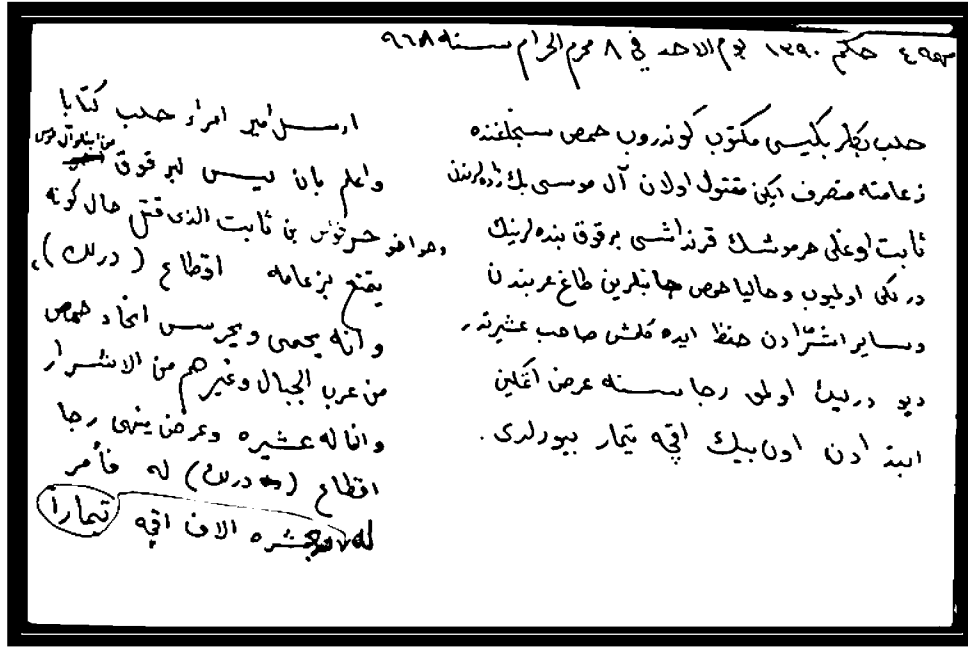 مهمه ٤ حكم ١٣٩٠ يوم الاحد في ٨ محرم الحرام سنه ٩٦٨
حلب بكلر بكيسى مكتوب كوندروب حمص سنجاغنده
زعامته متصرف ايكن مقتول اولان آل موسى بك زاده لرندن
ثابت اوغلى حرموشك قرنداشى برقوق بنده لرينك
دركى اوليوب وحاليا حمص جانبلرين طاغ عربندن
وساير اشرادن حفظ ايده كلمش صاحب عشيرتدر
ديو درلك اولمق رجا سنه عرض اتمكين
ابتدادن اون بيك اقچه تيمار بيورلدى.
ارسل امير امراء حلب كتابا
واعلم بان ليس لبرقوق من ابناء آل موسى
وهو اخو حرفوش بن ثابت الذى قتل حال كونه
يتمتع بزعامه اقطاع (درلك)،
وانه يحمى ويحرس انحاء حمص
من عرب الجبال وغيرهم من الاشرار
وان له عشيره وعرض ينهى رجا
اقطاع (درلك) له فأمر
له بعشره الاف اقچه تيمارا